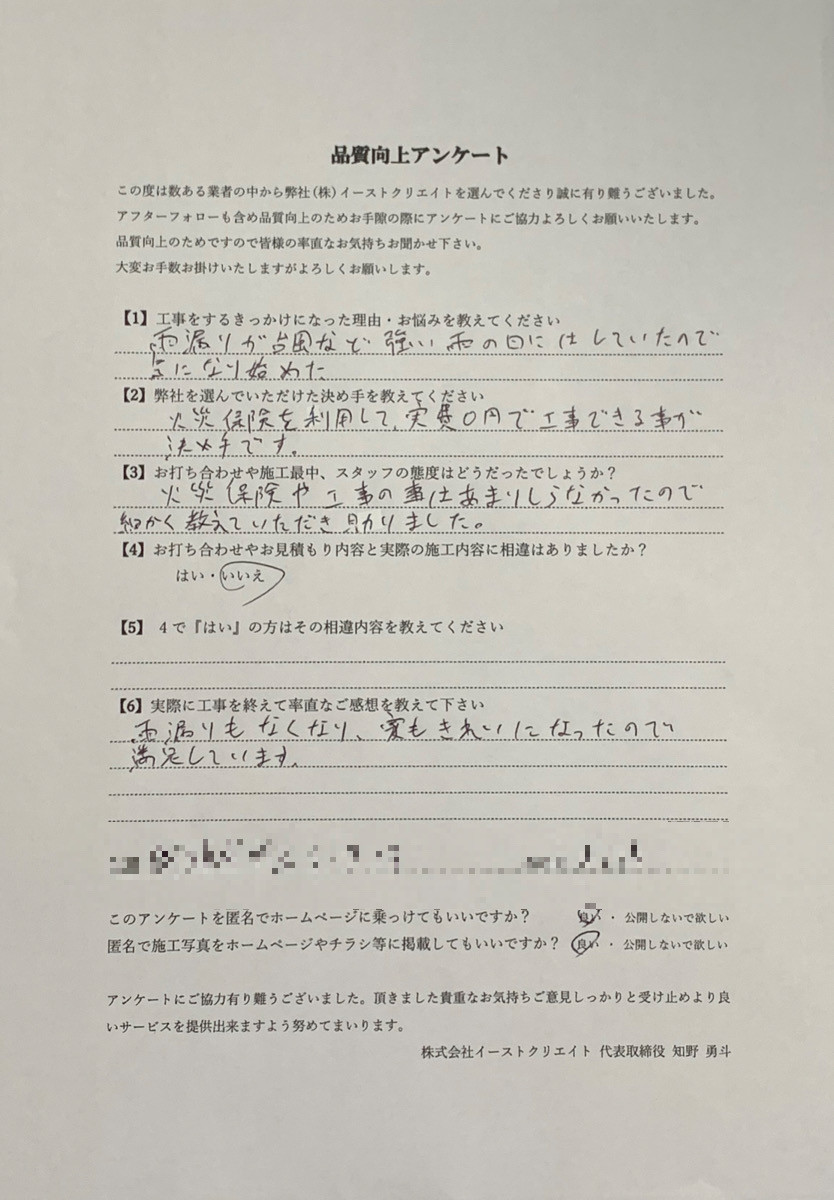 品質向上アンケート
この度は数ある業者の中から弊社(株)イーストクリエイトを選んでくださり誠に有り難うございました。
アフターフォローも含め品質向上のためお手隙の際にアンケートにご協力よろしくお願いいたします。
品質向上のためですので皆様の率直なお気持ちお聞かせ下さい。
大変お手数お掛けいたしますがよろしくお願いします。
【1】工事をするきっかけになった理由・お悩みを教えてください
雨漏りが台風など強い雨の日にはしていたので
気になり始めた
【2】弊社を選んでいただけた決め手を教えてください
火災保険を利用して、実費0円で工事できる事が
決め手です。
【3】お打ち合わせや施工最中、スタッフの態度はどうだったでしょうか？
火災保険や工事の事はあまりしらなかったので
細かく教えていただき助りました。
【4】お打ち合わせやお見積もり内容と実際の施工内容に相違はありましたか？
はい・いいえ
【5】 4で『はい』の方はその相違内容を教えてください
【6】実際に工事を終えて率直なご感想を教えて下さい
雨漏りもなくなり、家もきれいになったので
満足しています。
このアンケートを匿名でホームページに乗っけてもいいですか？ 良い ・ 公開しないで欲しい
匿名で施工写真をホームページやチラシ等に掲載してもいいですか？ 良い ・ 公開しないで欲しい
アンケートにご協力有り難うございました。頂きました貴重なお気持ちご意見しっかりと受け止めより良
いサービスを提供出来ますよう努めてまいります。
株式会社イーストクリエイト 代表取締役 知野 勇斗